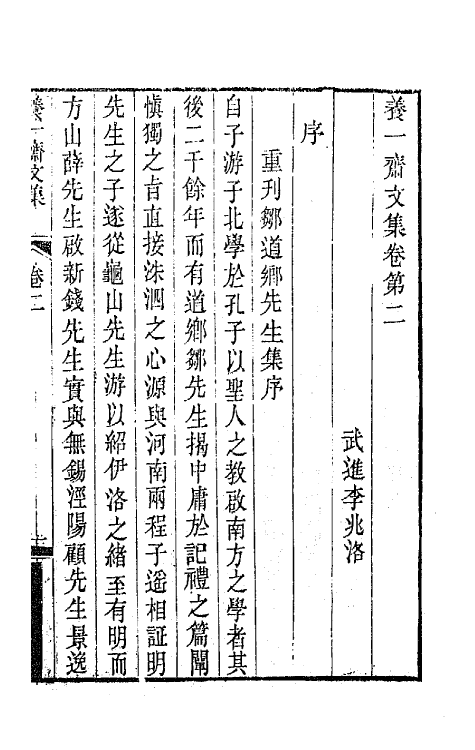 養一齋文集卷第二
武進李兆洛
序
重刋鄒道鄉先生集序
自子游子北學於孔子以聖人之教啟南方之學者其
後二千餘年而有道鄉鄒先生揭中庸於記禮之篇闡
愼獨之旨直接洙泗之心源與河南兩程子遥相証明
先生之子遂從龜山先生游以紹伊洛之緒至有明而
方山薛先生啟新錢先生實與無錫涇陽顧先生景逸
養一齋文集
卷二